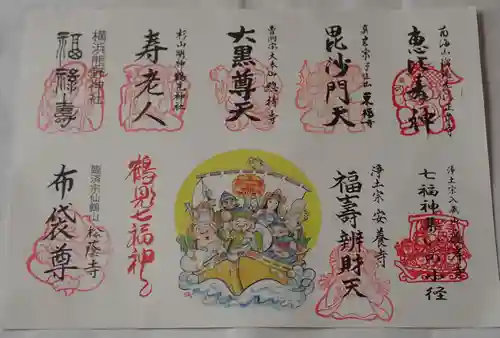 恵比寿神
真言宗
東福寺
毘沙門天
曹洞宗大本山總持寺
大黒尊天
杉山明神鶴見神社
寿老人
横浜熊野神社
福禄寿
七福神
小径
浄土宗 安養寺
福壽辨財天
鶴見七福神
臨済宗仙鶴山松蔭寺
布袋尊